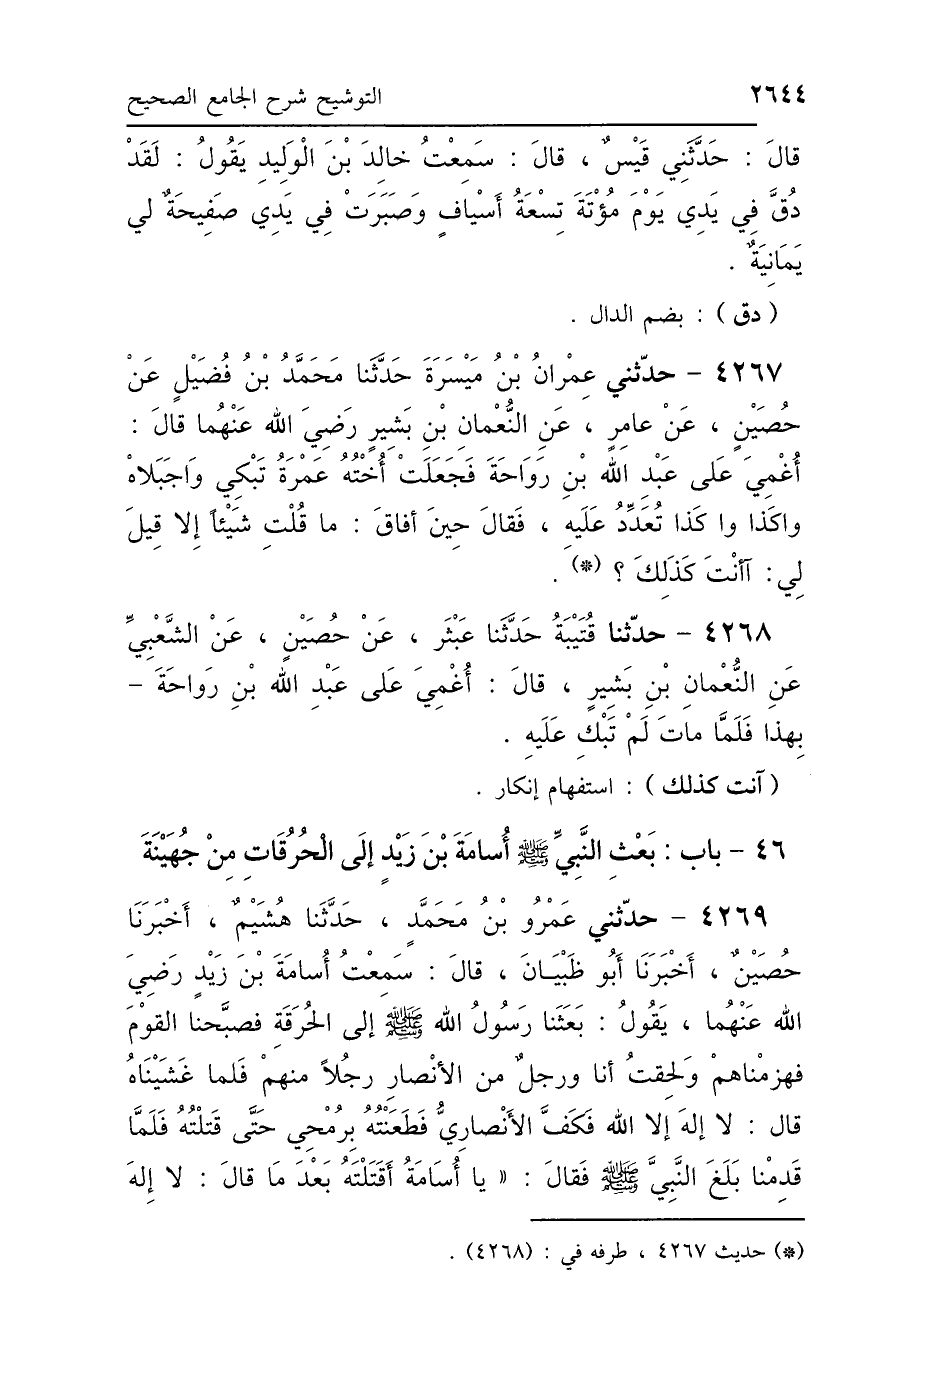 ٢٦٤٤ التوشيح شرح الجامع الصحيح
قالَ : حَدَّثَنِي قَيْسٌ ، قالَ : سَمِعْتُ خالِدَ بْنَ الْوَلِيدِ يَقُولُ : لَقَدْ
دُقَّ فِي يَدِي يَوْمَ مُؤْتَةَ تِسْعَةُ أَسْيافٍ وَصَبَرَتْ فِي يَدِي صَفِيحَةٌ لي
يَمَانِيَةٌ .
( دق ) : بضم الدال .
٤٢٦٧ - حدّثني عِمْرانُ بْنُ مَيْسَرَةَ حَدَّثَنا مُحَمَّدُ بْنُ فُضَيْلٍ عَنْ
حُصَيْنٍ ، عَنْ عامِرٍ ، عَنِ النُّعْمانِ بْنِ بَشِيرٍ رَضِيَ الله عَنْهُما قالَ :
أُغْمِيَ عَلى عَبْدِ الله بْنِ رَواحَةَ فَجَعَلَتْ أُخْتُهُ عَمْرَةُ تَبْكي وَاجَبَلاهْ
واكَذا وا كَذا تُعَدِّدُ عَلَيهِ ، فَقالَ حِينَ أفاقَ : ما قُلْتِ شَيْئاً إلا قِيلَ
لِي: آأَنْتَ كَذَلِكَ ؟ (*) .
٤٢٦٨ - حدّثنا قُتَيْبَةُ حَدَّثَنا عَبْثَر ، عَنْ حُصَيْنٍ ، عَنْ الشَّعْبِيِّ
عَنِ النُّعْمانِ بْنِ بَشِيرٍ ، قالَ : أُغْمِيَ عَلى عَبْدِ الله بْنِ رواحةَ -
بِهذا فَلَمَّا ماتَ لَمْ تَبْكِ عَلَيهِ .
( آنت كذلك ) : استفهام إنكار .
٤٦ - باب : بَعْثِ النَّبِيِّ ﷺ أُسامَةَ بْنَ زَيْدٍ إلَى الْحُرُقَاتِ مِنْ جُهَيْنَةَ
٤٢٦٩ - حدّثني عَمْرُو بْنُ مُحَمَّدٍ ، حَدَّثَنا هُشَيْمٌ ، أَخْبَرَنَا
حُصَيْنٌ ، أَخْبَرَنَا أَبُو ظَبْيَـانَ ، قالَ : سَمِعْتُ أُسامَةَ بْنَ زَيْدٍ رَضِيَ
الله عَنْهُما ، يَقُولُ : بَعَثَنا رَسُولُ الله ﷺ إلى الحُرَقَةِ فصبَّحنا القوْمَ
فهزمْناهمْ وَلَحِقتُ أنا ورجلٌ من الأنْصارِ رجُلاً منهمْ فَلما غَشَيْنَاهُ
قال : لا إلهَ إلا الله فَكَفَّ الأَنْصاريُّ فَطَعَنْتُهُ بِرُمْحِي حَتَّى قَتَلْتُهُ فَلَمَّا
قَدِمْنا بَلَغَ النَّبِيَّ ﷺ فَقالَ : « يا أُسَامَةُ أَقَتَلْتَهُ بَعْدَ مَا قالَ : لا إلهَ
(*) حديث ٤٢٦٧ ، طرفه في : (٤٢٦٨) .